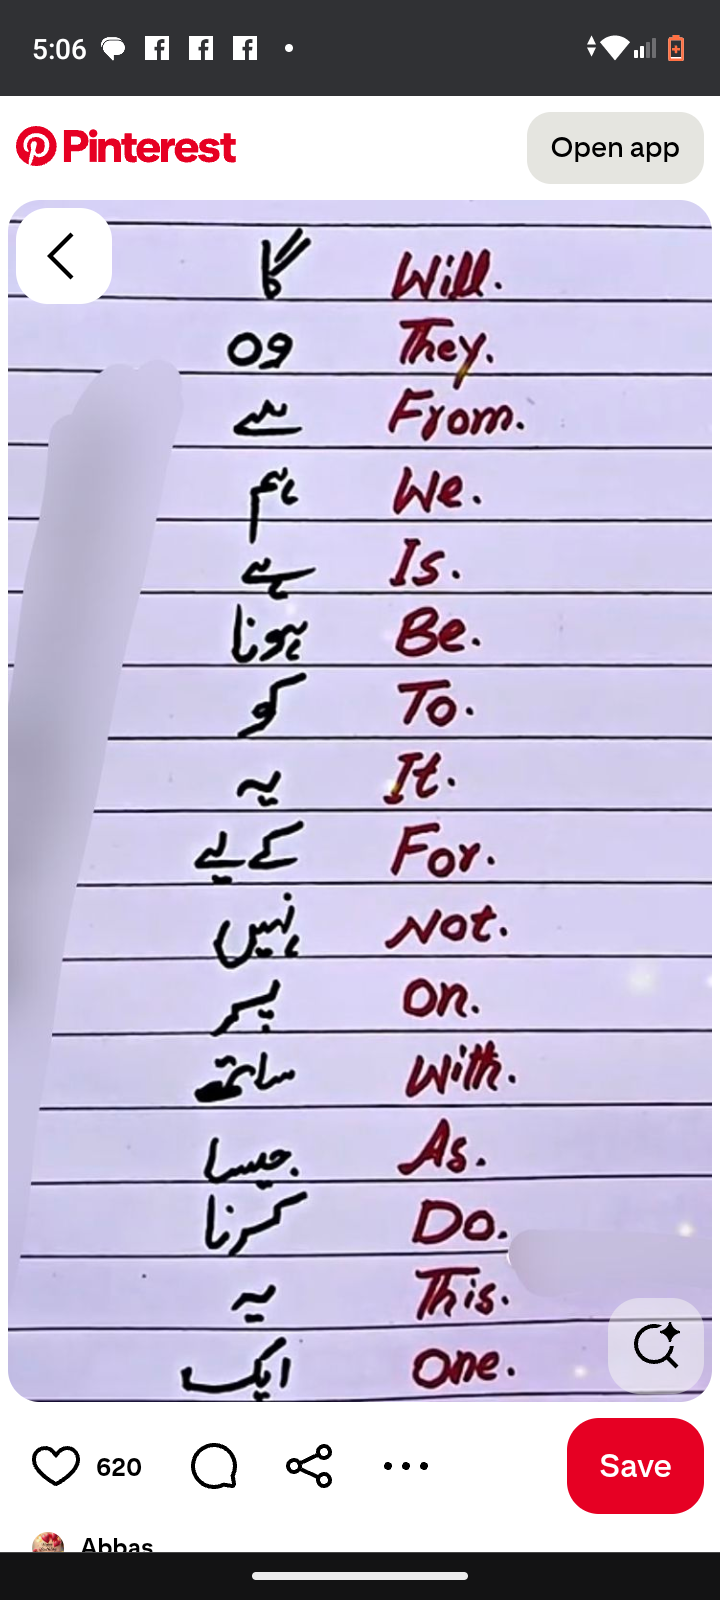 5:06
Pinterest
Open app
Will. گا
They. وہ
From. سے
We. ہم
Is. ہے
Be. ہونا
To. کو
It. یہ
For. کے لیے
Not. نہیں
On. پر
With. ساتھ
As. جیسا
Do. کرنا
This. یہ
One. ایک
620
Save
Abbas